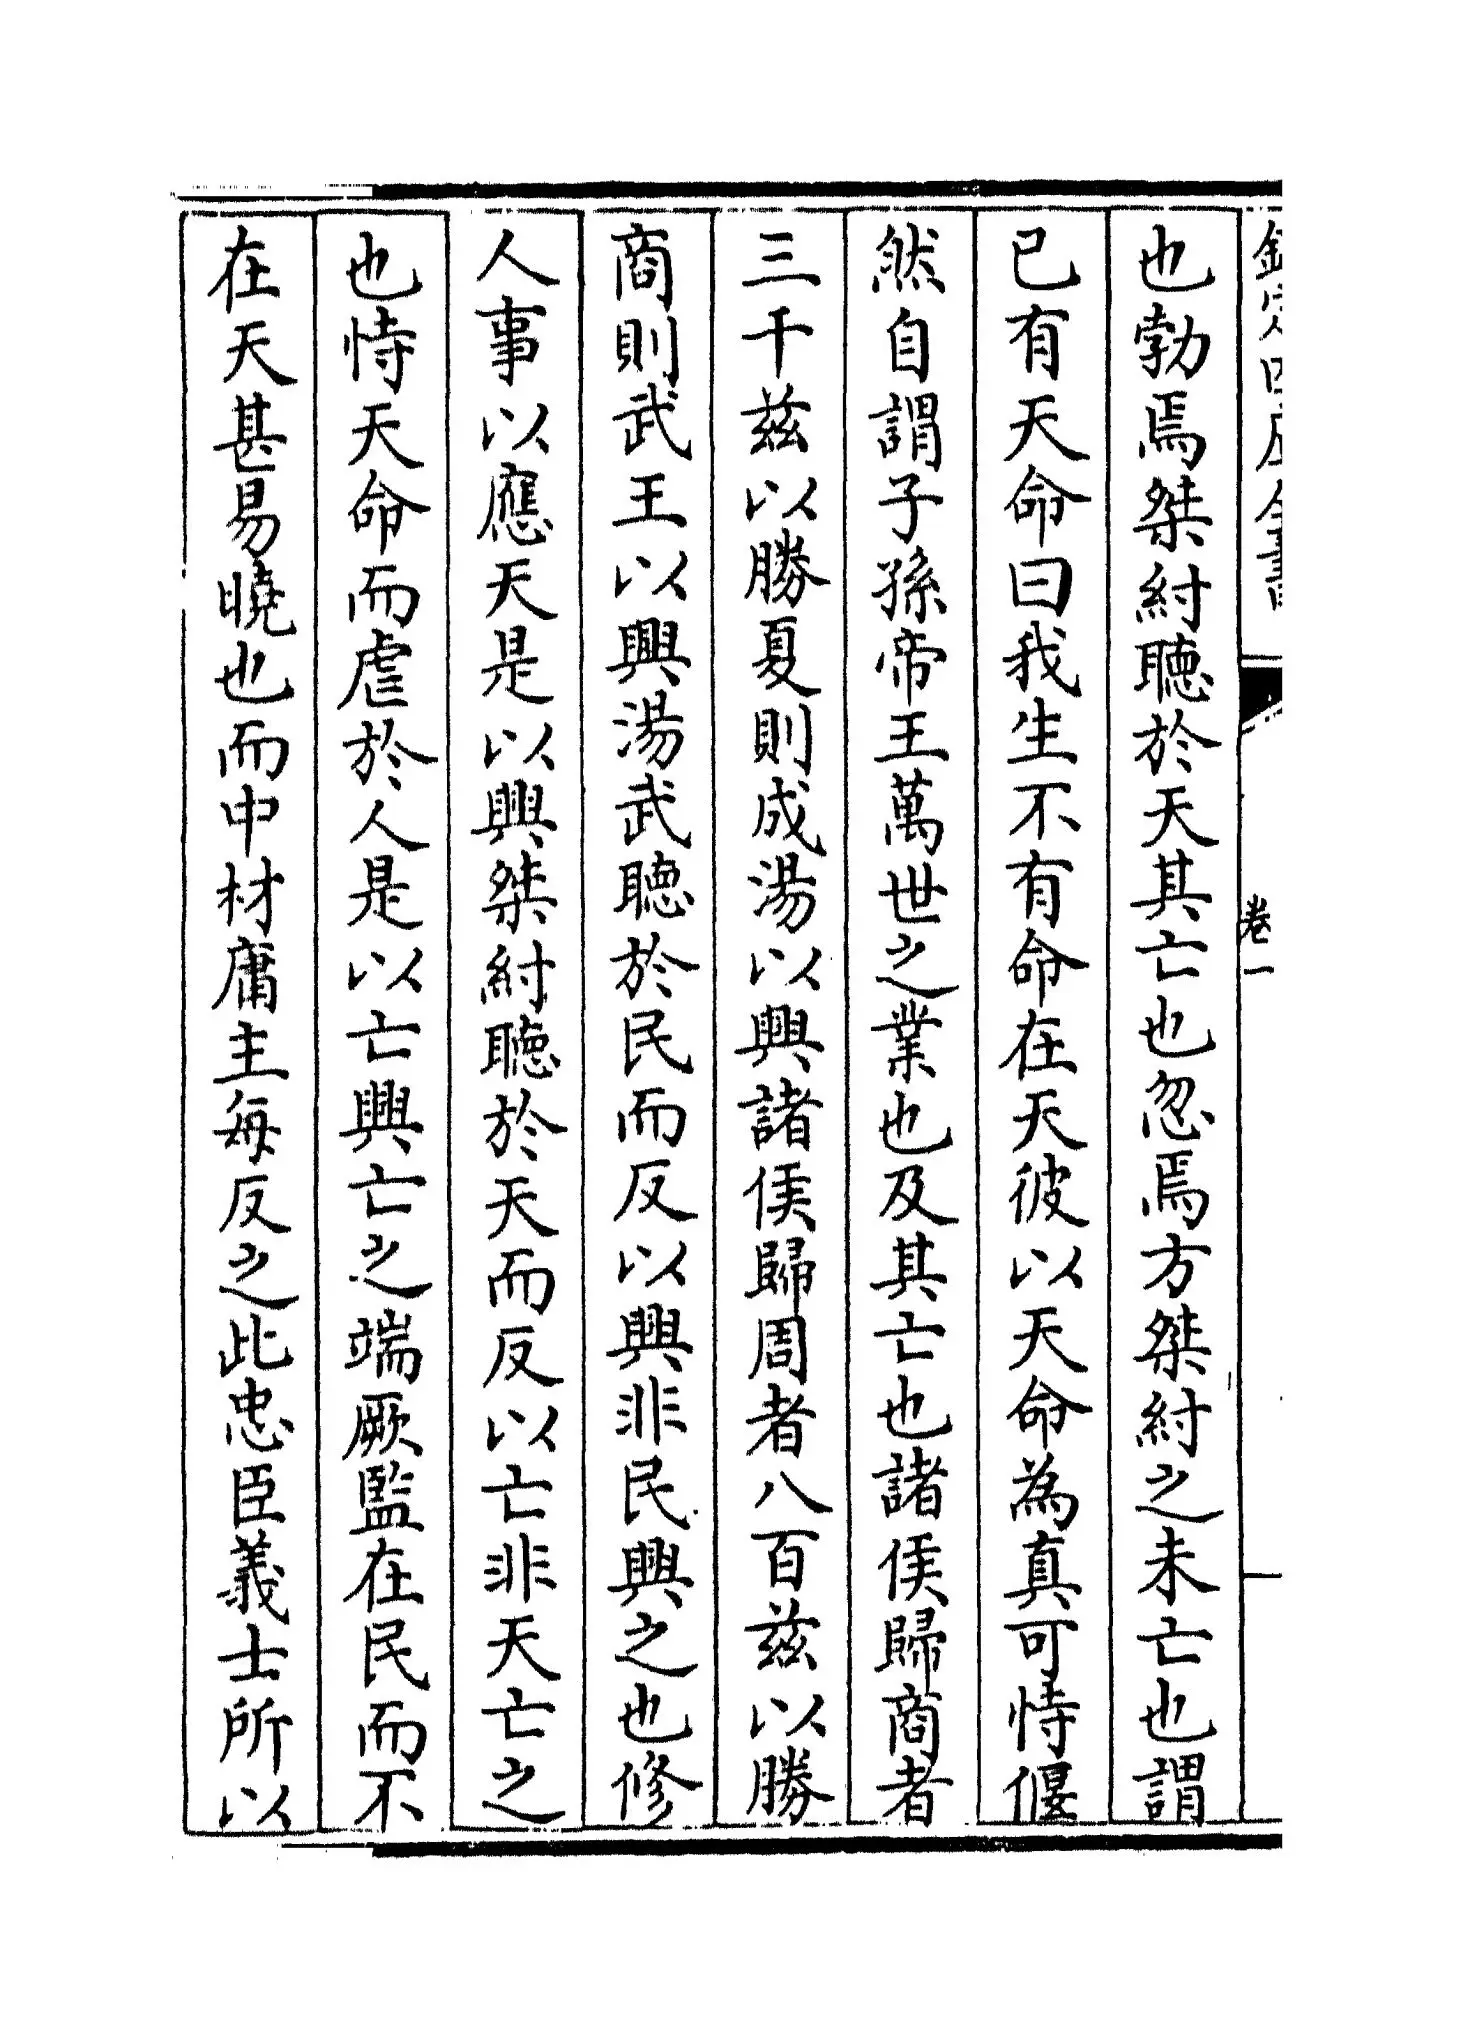 欽定四庫全書
卷一
也勃焉桀紂聽於天其亡也忽焉方桀紂之未亡也謂
已有天命曰我生不有命在天彼以天命為真可恃偃
然自謂子孫帝王萬世之業也及其亡也諸侯歸商者
三千兹以勝夏則成湯以興諸侯歸周者八百兹以勝
商則武王以興湯武聽於民而反以興非民興之也修
人事以應天是以興桀紂聽於天而反以亡非天亡之
也恃天命而虐於人是以亡興亡之端厥監在民而不
在天甚易曉也而中材庸主每反之此忠臣義士所以